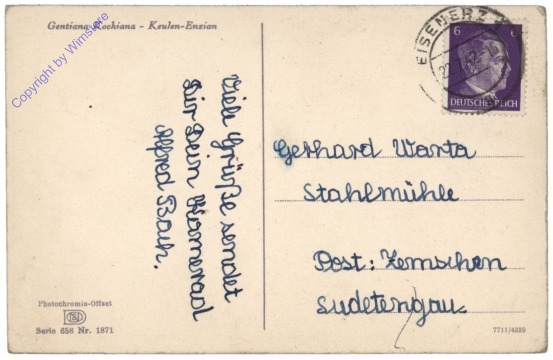 Gentiana Kochiana - Keulen-Enzian
Copyright by Wimstore
Viele Grüße sendet
Dir Dein Kamerad
Alfred Bach.
Photochromie-Offset
Serie 658 Nr. 1871
EISENERZ
6
6
DEUTSCHES REICH
Gerhard Warta
Stahlmühle
Post: Zemschen
Sudetengau
7711/4239